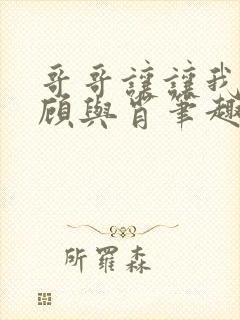 哥哥讓讓我
顧與肯筆趣
所羅森